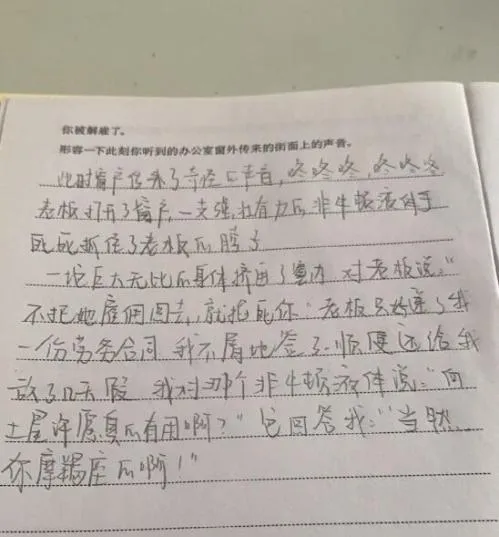 你被解雇了。
形容一下此刻你听到的办公室窗外传来的街面上的声音。
此时窗户传来了奇怪的声音，咚咚咚，咚咚咚
老板打开了窗户，一支强壮有力的非牛顿液体手
死死抓住了老板的脖子
一坨巨大无比的身体挤进了室内 对老板说：“
不把她雇佣回去，就掐死你：老板只好递了我
一份劳务合同 我不屑地签了 顺便还给我
放了几天假 我对那个非牛顿液体说：“向
土星许愿真的有用啊？”它回答我：“当然…
你摩羯座的啊！”